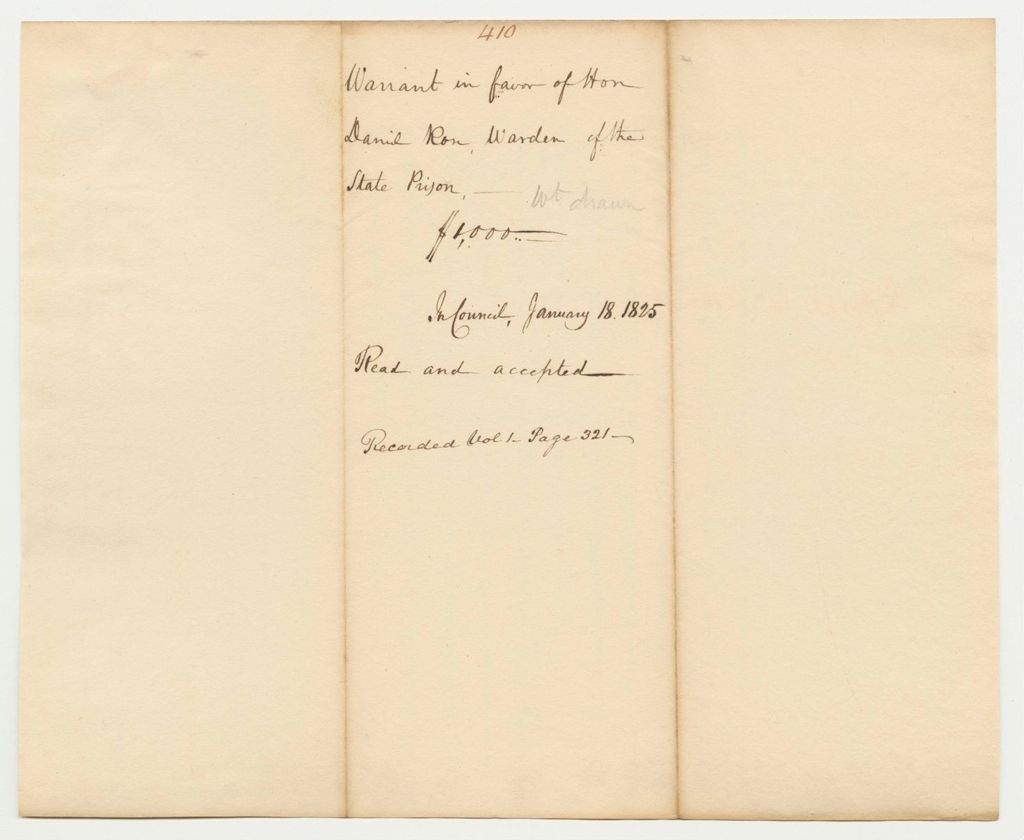 410
Warrant in favor of Hon
Daniel Rose, Warden of the
State Prison, —
Wt drawn
$1,000..—
In Council, January 18. 1825
Read and accepted—
Recorded Vol 1— Page 321—